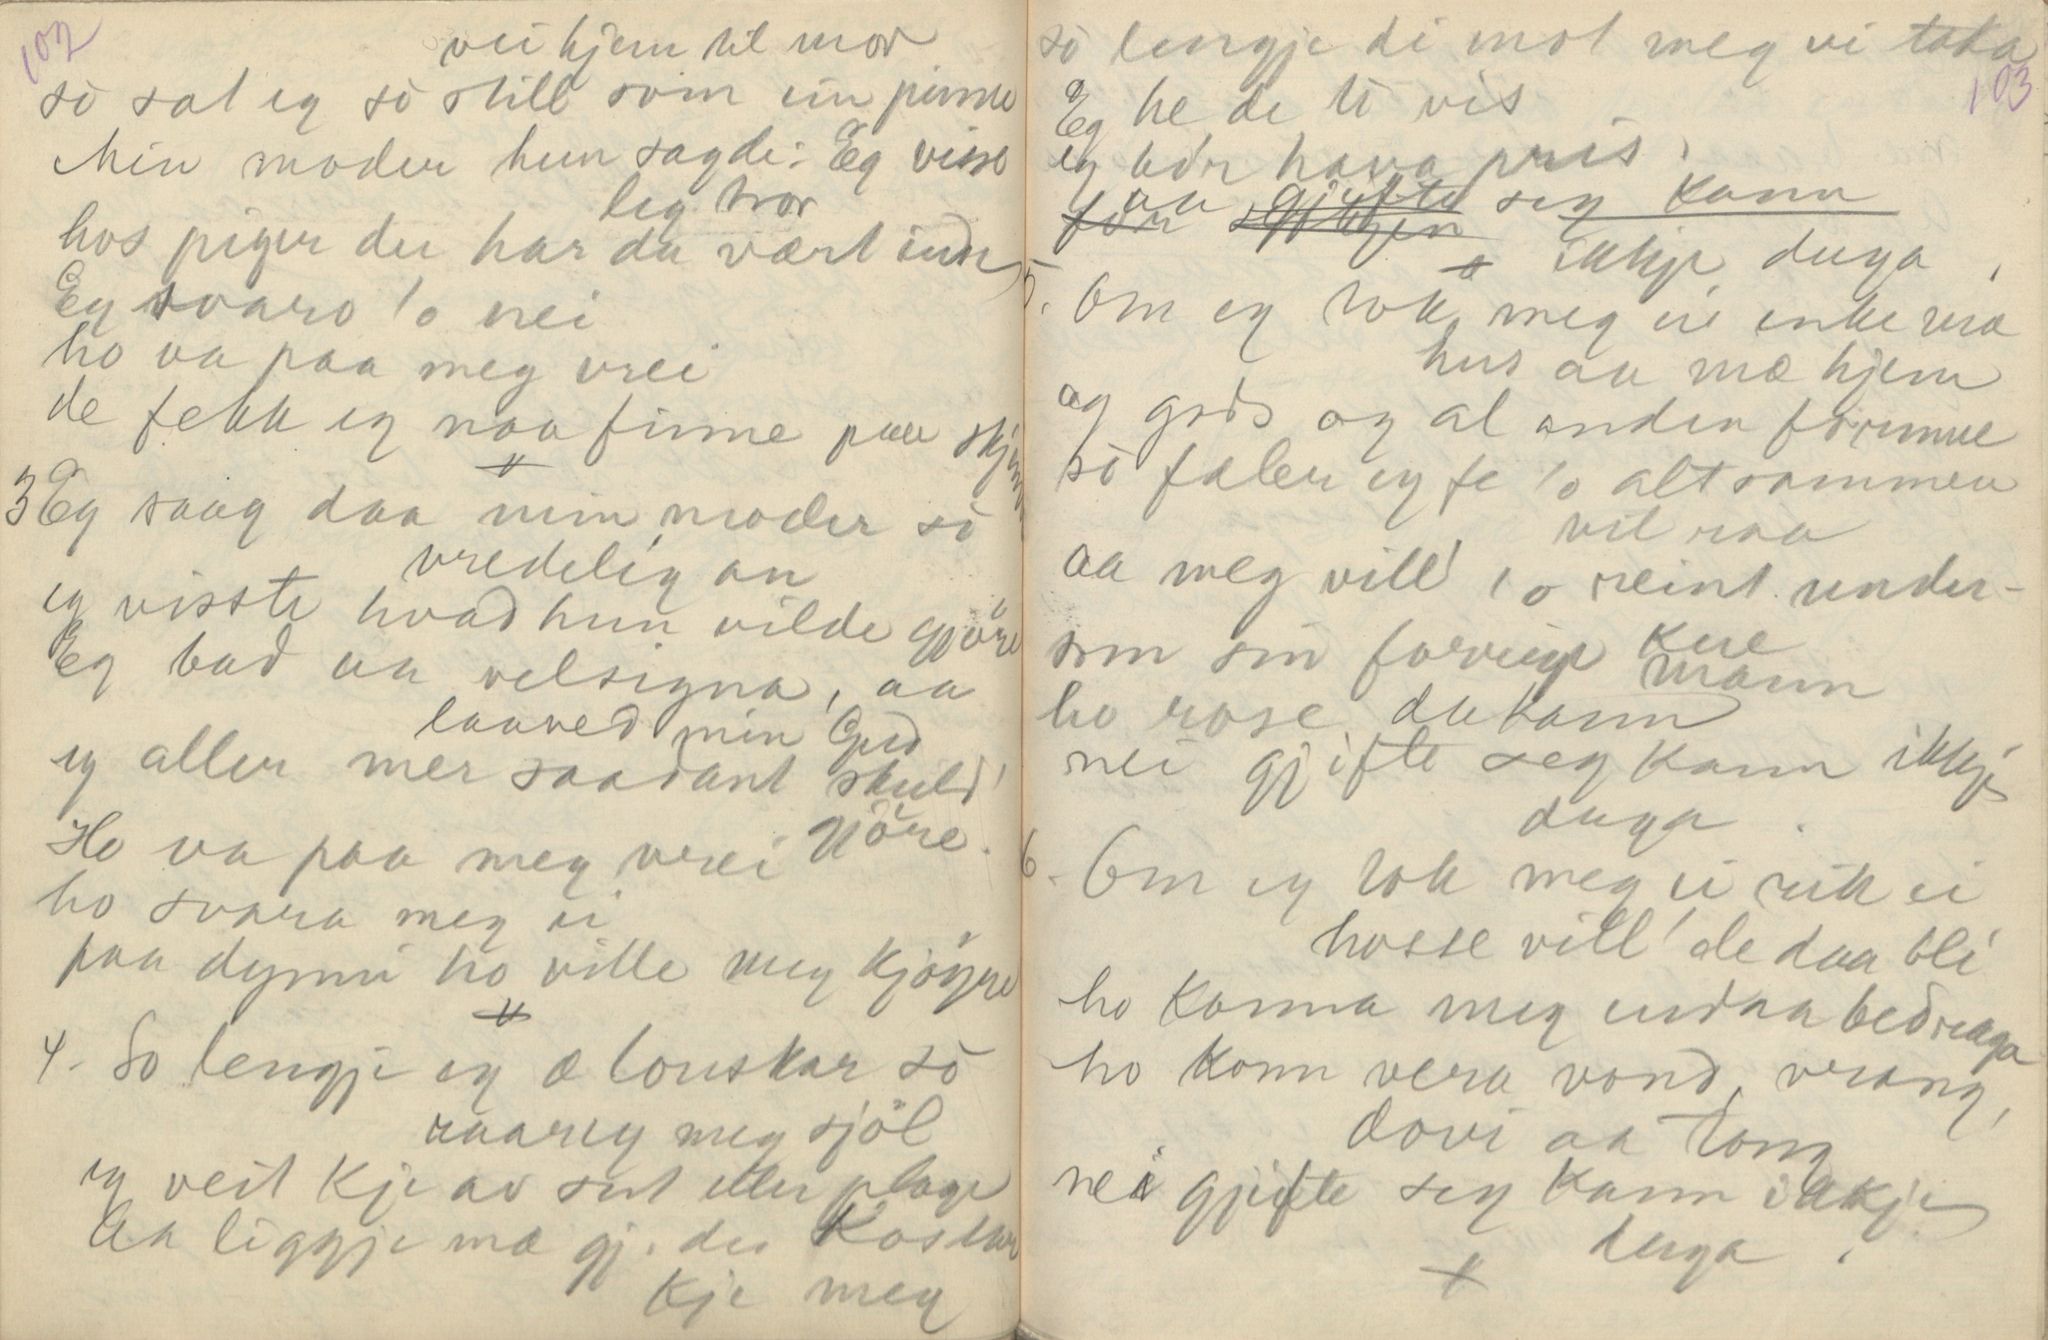 102
vei hjem til mor
so sat eg so still som ein pinne
Min moder hun sagde: Eg visse
leg tror
hos piger der har du vært inde
Eg svaro 'o nei
ho va paa meg vrei
de fekk eg naa finne paa
3 Eg saag daa min moder so
vredelig an
eg visste hvad hun vilde gjöre
Eg bad aa velsigna, aa
laaved min Gud
eg aller mer saadant skuld'
gjöre.
Ho va paa meg vrei
ho svara meg ei
paa dynni ho ville meg kjöyre
4. So lengje eg æ louskar so
raar eg meg sjöl
eg veit kje av sut eller plage
Aa liggje mæ gj. der kostar
kje meg
so lengje di mot meg vi taka
103
Eg he de ti vis
eg bör hava pris.
aa gjifte seg kann
ikkje duga.
5. Om eg tok meg ei enke mæ
hus aa mæ hjem
og gods og al anden formue
so fæler eg fe 'o altsammen
vil raa
aa meg vill' 'o reint under-
kue
som sin forrige mann
ho rose da kann
nei gjifte seg kann ikkje
duga.
6. Om eg tok meg ei rik ei
hosse vill' de daa bli
ho kanna meg endaa bedraga
ho kann vera vond, vrang,
dovi aa tong
nei gjifte seg kann ikkje
duga.